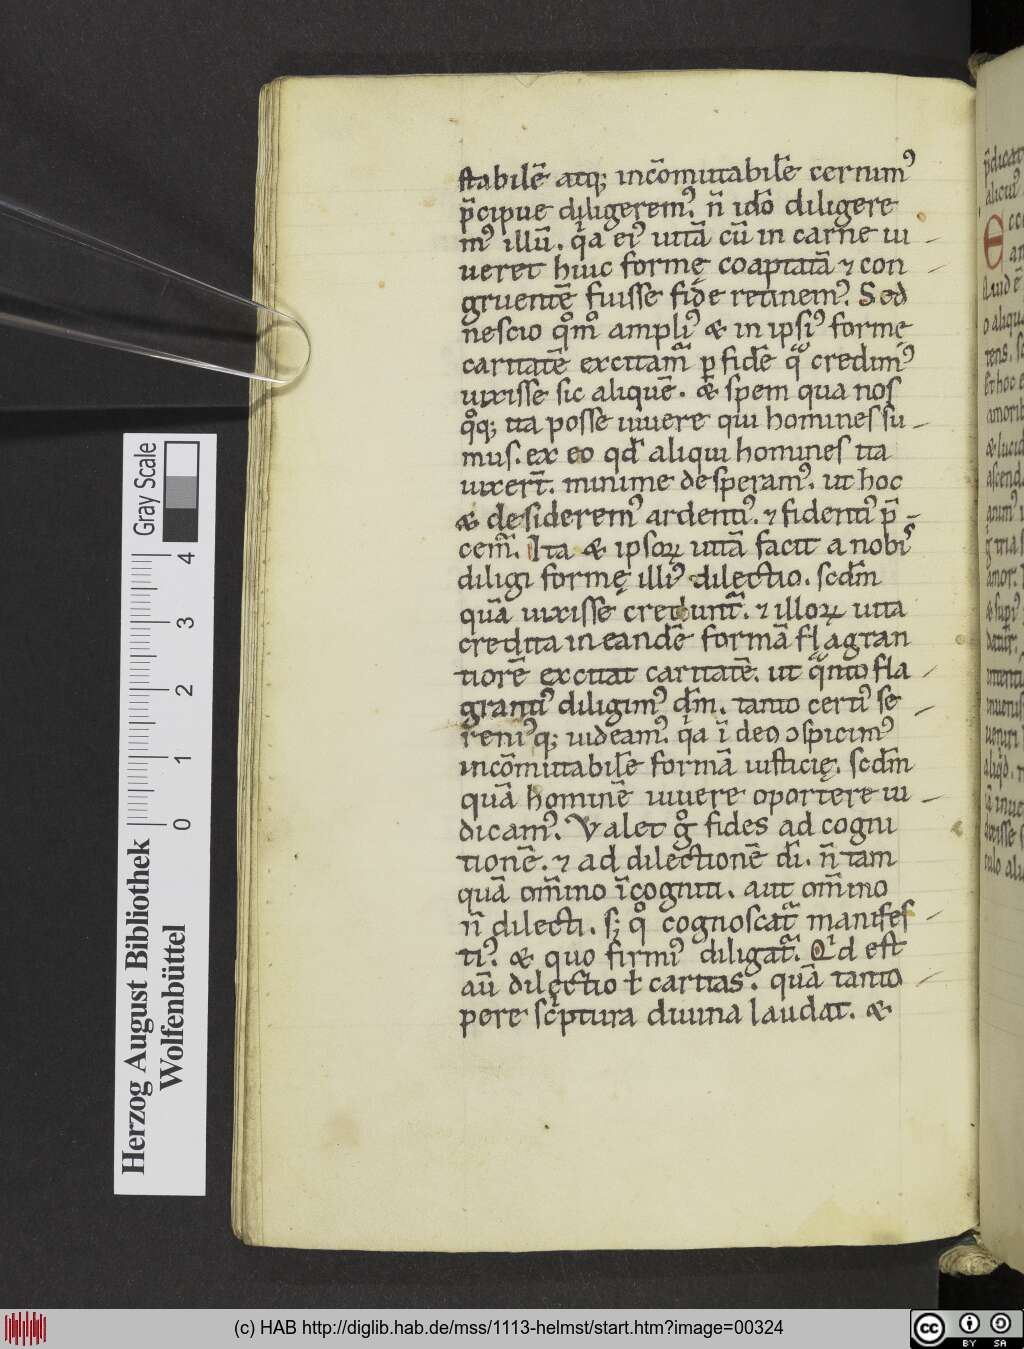 stabilē atq; incōmutabilē cernimꝰ
p̄cipue diligeremꝰ. n̄ idō diligere
mꝰ illū. qͥa eiꝰ uitā cū in carne ui
ueret huic formę coaptatā ⁊ con
gruentē fuisse fide retinemꝰ. Sed
nescio qͦmͦ ampliꝰ & in ipsiꝰ formę
caritatē excitamᷓ ꝑ fidē qᷓ credimꝰ
uixisse sic aliquē. & spem qua nos
qͦq; ita posse uiuere qui homines su
mus. ex eo qd̄ aliqui homines ita
uixert̄. minime desperamꝰ. ut hoc
& desideremꝰ ardentiꝰ. ⁊ fidentiꝰ p̄
cemᷓ. Ita & ipsoꝝ uitā facit a nobiꝰ
diligi formę illiꝰ dilectio. scdm̄
quā uixisse creduntᷓ. ⁊ illoꝝ uita
credita in eandē formā flagran
tiorē excitat caritatē. ut qᷓnto fla
grantiꝰ diligimꝰ dm̄. tanto certiꝰ se
reniꝰq; uideamꝰ. qͥa ī deo ↄspicimꝰ
incōmutabilē formā iusticię. scdm̄
quā hominē uiuere oportere iu
dicamꝰ. Valet gͦ fides ad cogni
tionē. ⁊ ad dilectionē dī. n̄ tam
quā om̄ino īcogniti. aut om̄ino
n̄ dilecti. s; qͦ cognoscatᷓ manifes
tiꝰ. & quo firmiꝰ diligatᷓ. Qͥd est
aū dilectio ł caritas. quā tanto
pere scͥptura diuina laudat. &
Gray Scale
0 1 2 3 4
Herzog August Bibliothek
Wolfenbüttel
(c) HAB http://diglib.hab.de/mss/1113-helmst/start.htm?image=00324
cc BY SA